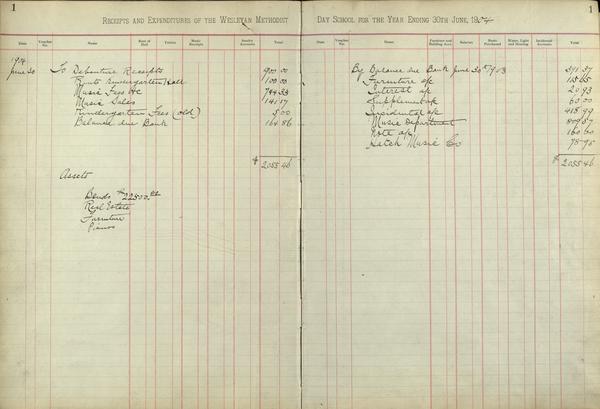 1
RECEIPTS AND EXPENDITURES OF THE WESLEYAN METHODIST
Date Voucher No. Name Rent of Hall Tuition Music Receipts Sundry Accounts Total
1904
June 30 To Debenture Receipts 900.00
Rents Kindergarten Hall 100.00
Music Fees A/c 744.33
Music Sales 141.17
Kindergarten Fees (old) 5.00
Balance due Bank 164.86
$ 2055.46
Assets
Bonds $22500.00
Real Estate
Furniture
Pianos
1
DAY SCHOOL FOR THE YEAR ENDING 30TH JUNE, 1904
Date Voucher No. Name Furniture and Building Acct. Salaries Music Purchased Water, Light and Heating Incidental Accounts Total
By Balance due Bank June 30th 1903
Furniture a/c
Interest a/c 20.93
Supplement a/c 60.00
Incidental a/c
Music Department
Note a/c 160.60
Hatch Music Co
$ 2055.46